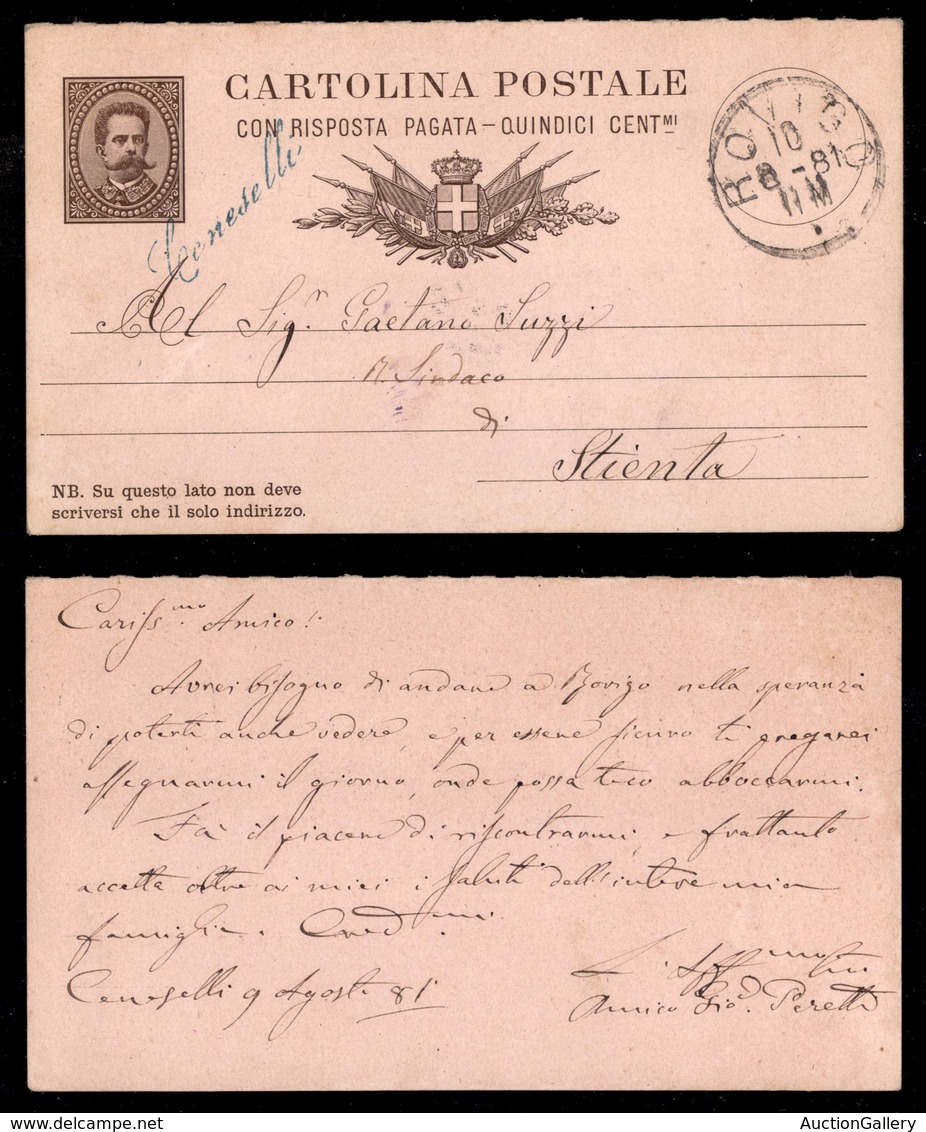 CARTOLINA POSTALE
CON RISPOSTA PAGATA – QUINDICI CENTMI
Ceneselli
ROVIGO
10
8 - 81
Al Sigr Gaetano Suzzi
R. Sindaco
di
Stienta
NB. Su questo lato non deve
scriversi che il solo indirizzo.
Carissmo Amico!
Avrei bisogno di andare a Rovigo nella speranza
di poterti anche vedere, e per essere sicuro ti pregarei
assegnarmi il giorno, onde possa teco abboccarmi.
Fai il piacere di riscontrarmi, e frattanto
accetta oltre ai miei i saluti dell'intera mia
famiglia. Credmi
Ceneselli 9 Agosto 81
Amico Giod. Peretti
AuctionGallery